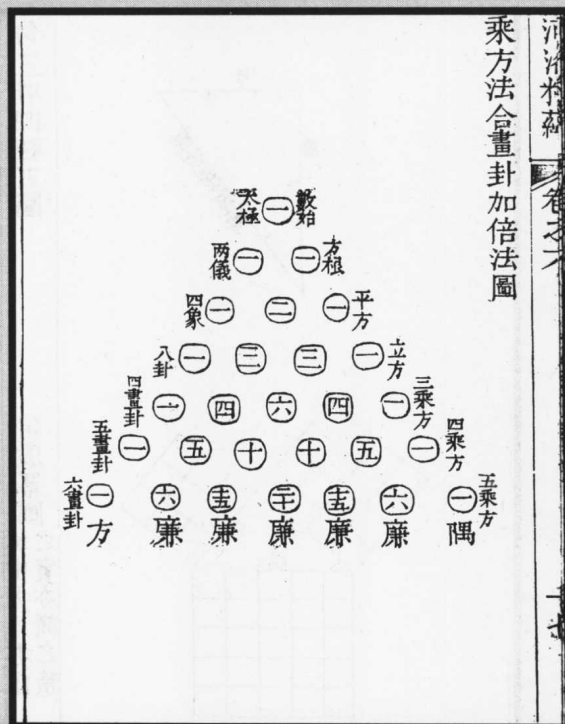 河洛精蘊 卷之六
乘方法合畫卦加倍法圖
太極 一 數始
两儀 一 一 方根
四象 一 二 一 平方
八卦 一 三 三 一 立方
四畫卦 一 四 六 四 一 三乘方
五畫卦 一 五 十 十 五 一 四乘方
六畫卦 一 六 十五 二十 十五 六 一 五乘方
方 廉 廉 廉 廉 廉 隅